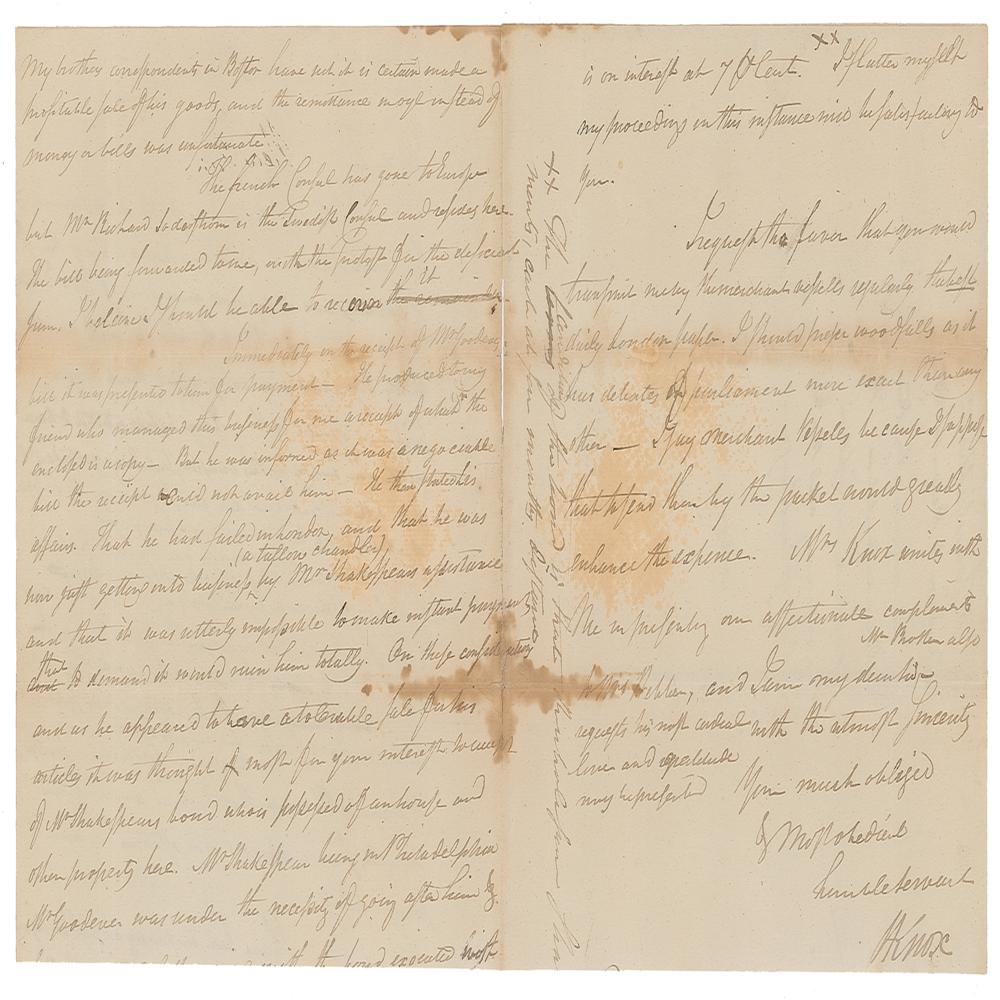 My brothers correspondents in Boston have not it is certain made a
profitable sale of his goods, and the remittance in oyl instead of
money or bills was unfortunate
The french Consul has gone to Europe
but Mr Richard Soderstrom is the Swedish Consul and resides here.
The bill being forwarded to me, with the protest for the deficient
sum, I believe I should be able to recover it
Immediately on the receipt of Mr Goodeves
bill it was presented to him for payment — He produced to my
friend who managed this business for me a receipt of which the
enclosed is a copy — But he was informed as it was a negociable
bill the receipt would not avail him — He then stated his
affairs. That he had failed in London, and that he was
(a tallow chandler)
now just getting into business by Mr Shakespears assistance
and that it was utterly impossible to make instant payment
that
to demand it would ruin him totally. On these considerations
and as he appeared to have a tolerable sale for his
articles it was thought most for your interest to accept
of Mr Shakespears bond who is possessed of an house and
other property here. Mr Shakespear being in Philadelphia
Mr Goodeve was under the necessity of going after him &
with the bond executed
xx The condition of the bond is that
ments, each at six months distance
xx
is on interest at 7 P Cent. I flatter myself
my proceedings in this instance will be satisfactory to
you.
I request the favor that you would
transmit me by the merchant vessells regularly the best
daily London paper. I should prefer woodfalls as it
has debates of parliament more exact than any
other — I say merchant vessels because I suppose
that to send them by the packet would greatly
enhance the expence. Mrs Knox unites with
me in presenting our affectionate compliments
Mr also
to Mrs, and I am my dear sir
requests his most cordial with the utmost sincerity
love and gratitude
may be presented Your much obliged
& Most obedient
humble servant
HKnox